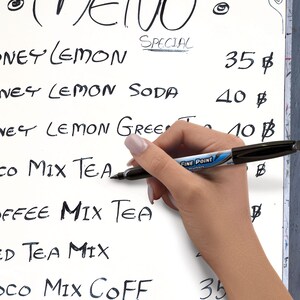 MENU
SPECIAL
ONEY LEMON 35 ฿
NEY LEMON SODA 40 ฿
NEY LEMON GREEN TEA 40 ฿
CO MIX TEA
FINE POINT
OFFEE MIX TEA ฿
ED TEA MIX
OCO MIX COFF 35